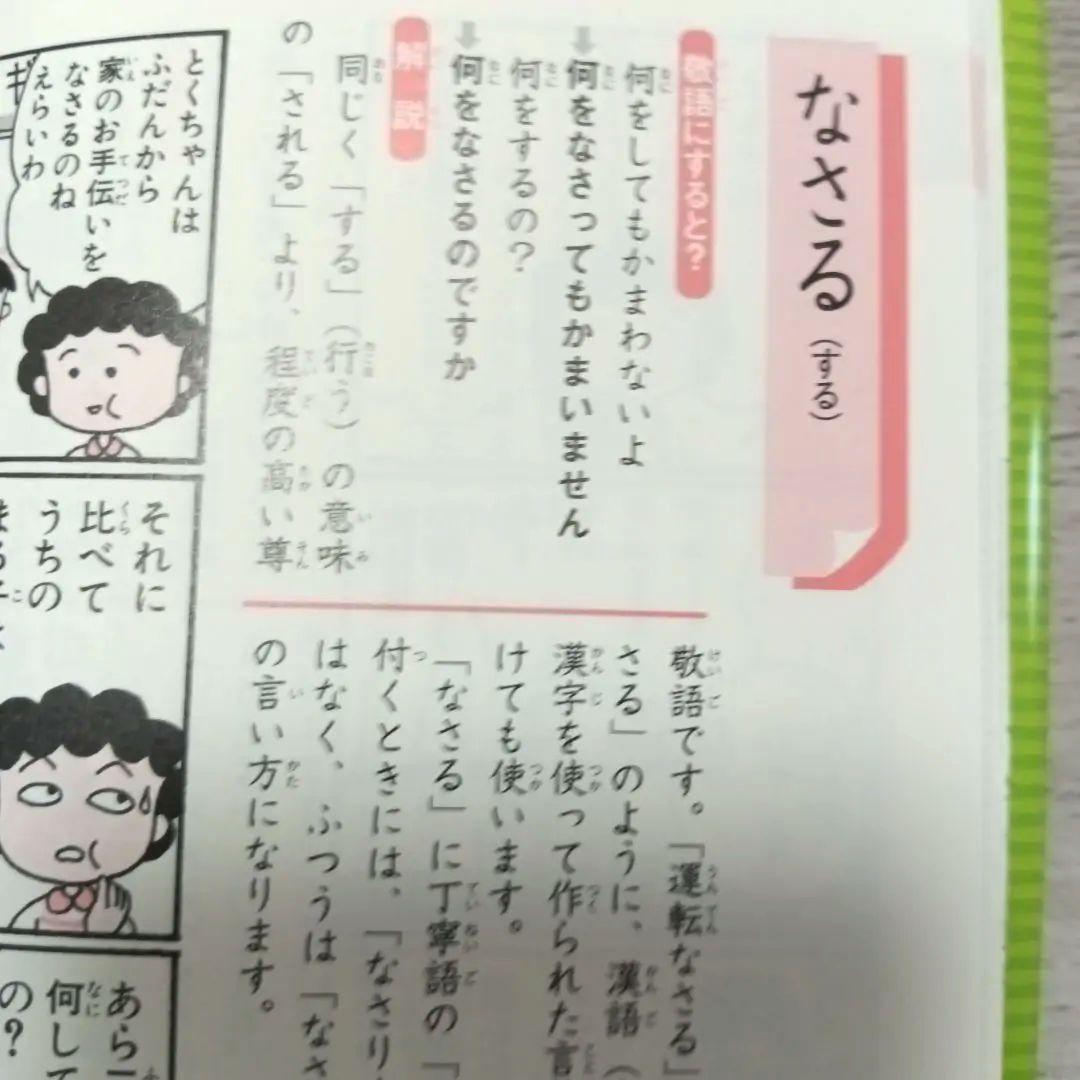 なさる(する)
敬語にすると?
何をしてもかまわないよ
↓何をなさってもかまいません
何をするの?
↓何をなさるのですか
解説
同じく「する」(行う)の意味
の「される」より、程度の高い尊
敬語です。「運転なさる」
さる」のように、漢語(
漢字を使って作られた言
けても使います。
「なさる」に丁寧語の「
付くときには、「なさり
はなく、ふつうは「なさ
の言い方になります。
とくちゃんは
ふだんから
家のお手伝いを
なさるのね
えらいわ
それに
比べて
うちの
あら
何して
の?